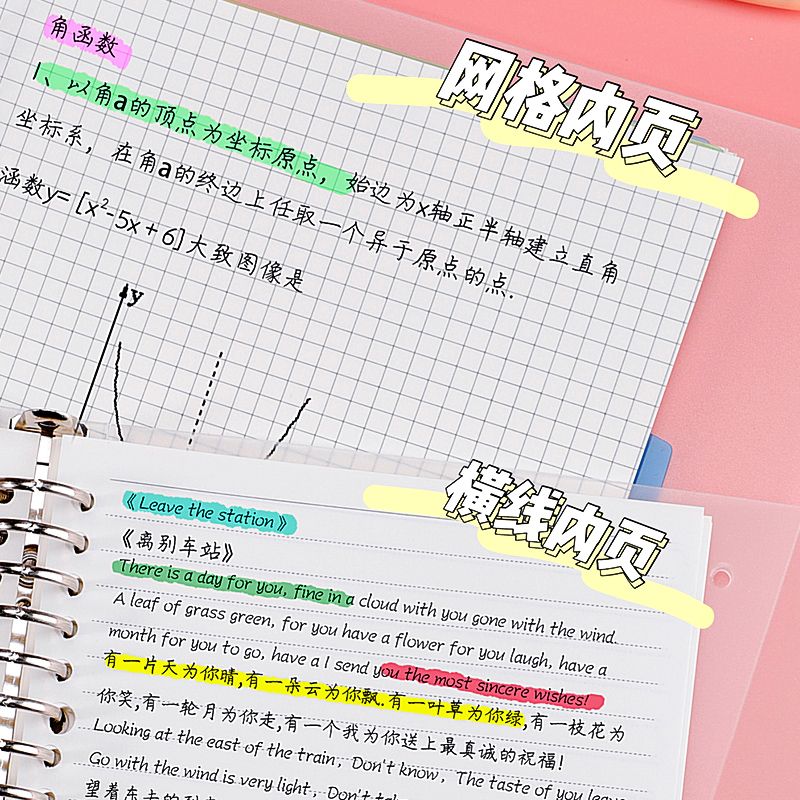 角函数
网格内页
1、以角a的顶点为坐标原点，始边为x轴正半轴建立直角
坐标系，在角a的终边上任取一个异于原点的点.
函数y=[x²-5x+6]大致图像是
y
横线内页
《Leave the station》
《离别车站》
There is a day for you, fine in a cloud with you gone with the wind.
A leaf of grass green, for you have a flower for you laugh, have a
month for you to go, have a I send you the most sincere wishes!
有一片天为你晴,有一朵云为你飘.有一叶草为你绿,有一枝花为
你笑,有一轮月为你走,有一个我为你送上最真诚的祝福!
Looking at the east of the train, Don't know, The taste of you leave
Go with the wind is very light, Don't
望着东去的列车